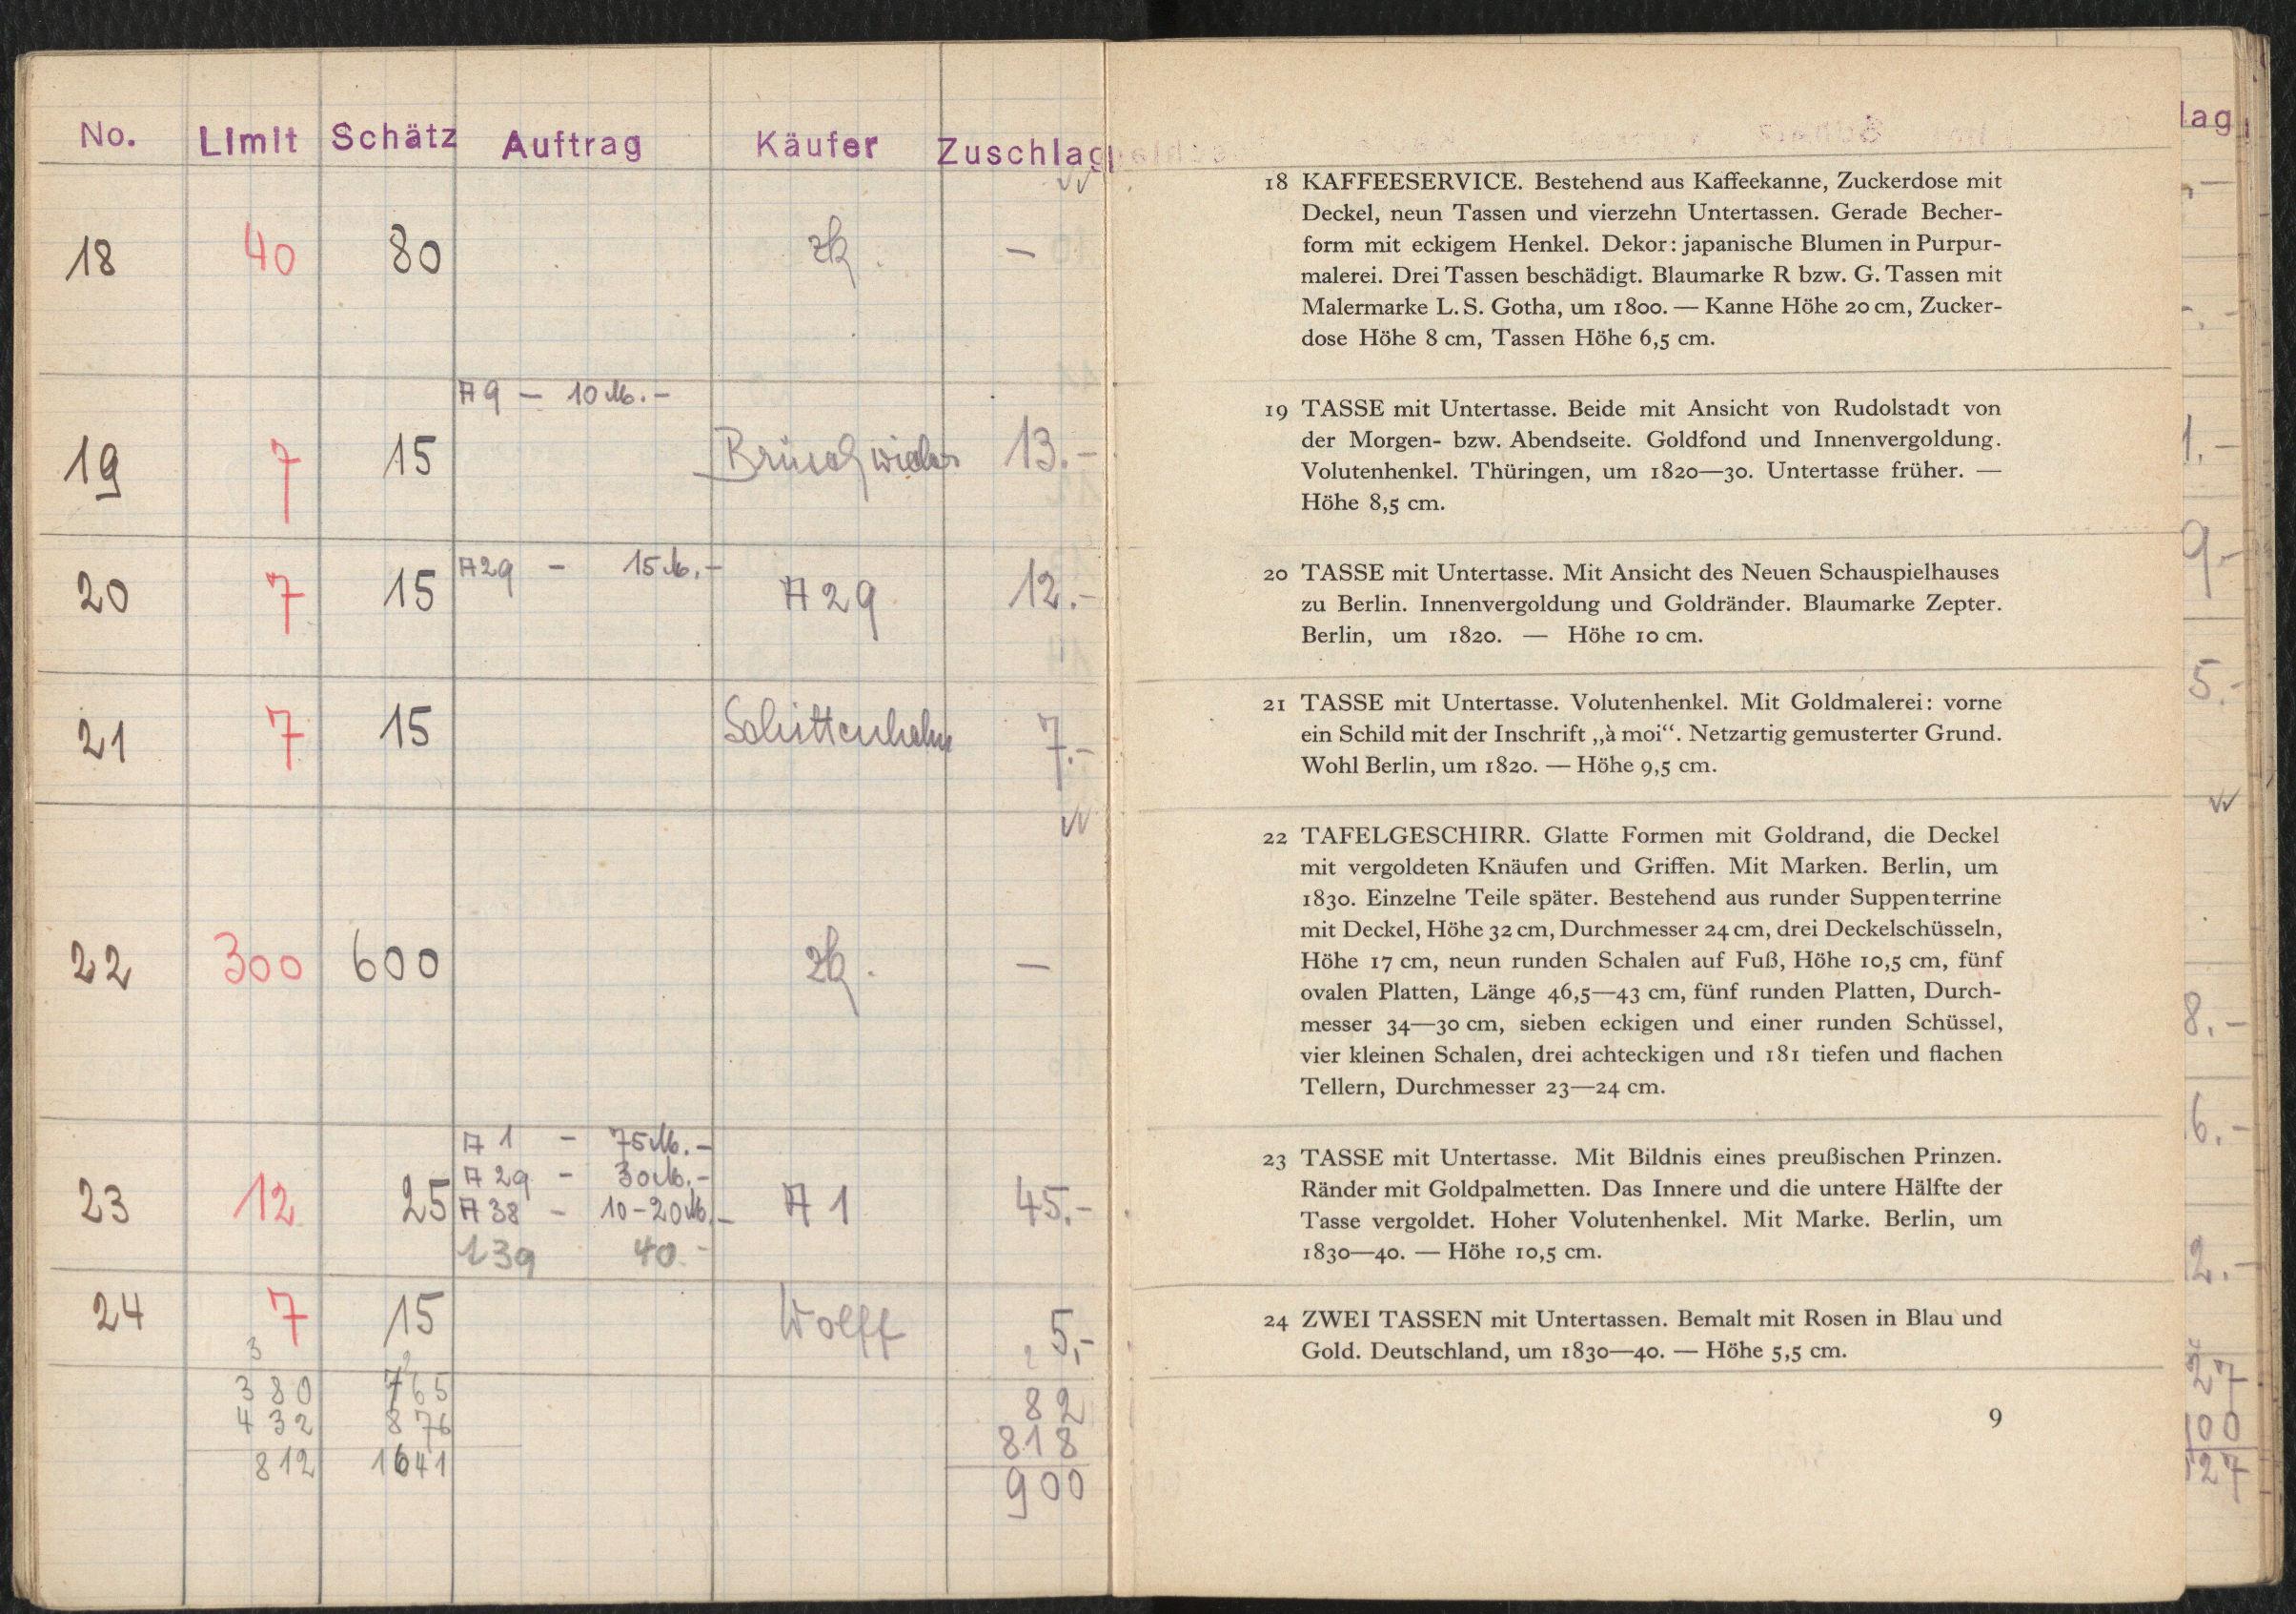 No. Limit Schätz Auftrag Käufer Zuschlag
18 40 80 zk. —
A9 — 10 M.—
19 7 15 13.—
A29 — 15 M.—
20 7 15 A29 12.—
21 7 15 Schittenhelm 7.—
22 300 600 zk. —
A 1 — 75 M.—
A 29 — 30 M.—
23 12 25 A 38 — 10-20 M.— A 1 45.—
139 40.—
24 7 15 Wolff 5,-
380 765 82
432 876 818
812 1641 900
18 KAFFEESERVICE. Bestehend aus Kaffeekanne, Zuckerdose mit
Deckel, neun Tassen und vierzehn Untertassen. Gerade Becher-
form mit eckigem Henkel. Dekor: japanische Blumen in Purpur-
malerei. Drei Tassen beschädigt. Blaumarke R bzw. G. Tassen mit
Malermarke L. S. Gotha, um 1800. — Kanne Höhe 20 cm, Zucker-
dose Höhe 8 cm, Tassen Höhe 6,5 cm.
19 TASSE mit Untertasse. Beide mit Ansicht von Rudolstadt von
der Morgen- bzw. Abendseite. Goldfond und Innenvergoldung.
Volutenhenkel. Thüringen, um 1820—30. Untertasse früher. —
Höhe 8,5 cm.
20 TASSE mit Untertasse. Mit Ansicht des Neuen Schauspielhauses
zu Berlin. Innenvergoldung und Goldränder. Blaumarke Zepter.
Berlin, um 1820. — Höhe 10 cm.
21 TASSE mit Untertasse. Volutenhenkel. Mit Goldmalerei: vorne
ein Schild mit der Inschrift „à moi“. Netzartig gemusterter Grund.
Wohl Berlin, um 1820. — Höhe 9,5 cm.
22 TAFELGESCHIRR. Glatte Formen mit Goldrand, die Deckel
mit vergoldeten Knäufen und Griffen. Mit Marken. Berlin, um
1830. Einzelne Teile später. Bestehend aus runder Suppenterrine
mit Deckel, Höhe 32 cm, Durchmesser 24 cm, drei Deckelschüsseln,
Höhe 17 cm, neun runden Schalen auf Fuß, Höhe 10,5 cm, fünf
ovalen Platten, Länge 46,5—43 cm, fünf runden Platten, Durch-
messer 34—30 cm, sieben eckigen und einer runden Schüssel,
vier kleinen Schalen, drei achteckigen und 181 tiefen und flachen
Tellern, Durchmesser 23—24 cm.
23 TASSE mit Untertasse. Mit Bildnis eines preußischen Prinzen.
Ränder mit Goldpalmetten. Das Innere und die untere Hälfte der
Tasse vergoldet. Hoher Volutenhenkel. Mit Marke. Berlin, um
1830—40. — Höhe 10,5 cm.
24 ZWEI TASSEN mit Untertassen. Bemalt mit Rosen in Blau und
Gold. Deutschland, um 1830—40. — Höhe 5,5 cm.
9
lag
1.-
9-
5.-
8.-
6.-
2.-
27
00
27